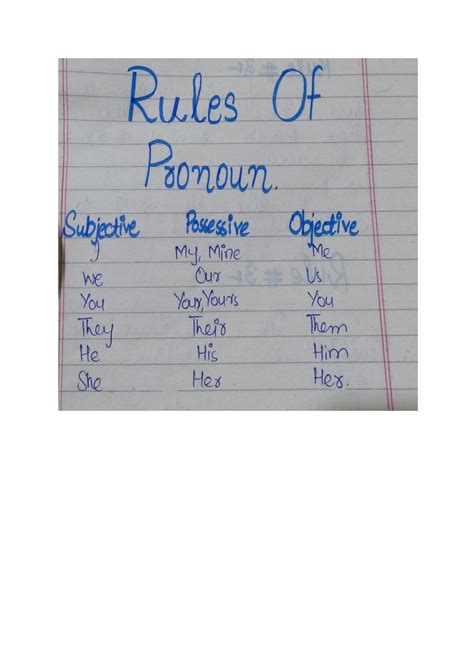 Rules Of
Pronoun.
Subjective Possessive Objective
I My, Mine Me
We Our Us
You Your, Yours You
They Their Them
He His Him
She Her Her.